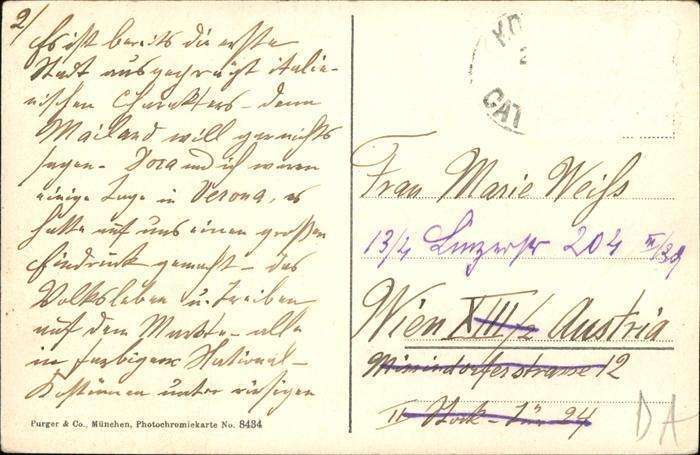 2/
Es ist bereits die erste
Stadt ausgeprägt italie-
nischen Charakters – denn
Mailand will gar nichts
sagen – Dora und ich waren
einige Tage in Verona, es
hatte auf uns einen großen
Eindruck gemacht – das
Volksleben u. Treiben
auf dem Markte – alle
in farbigen National-
Kostümen unter riesigen
Purger & Co., München, Photochromiekarte No. 8434
CAT
Frau Marie Weiss
13/4 Linzerstr 204 II/39
Wien XIII/2 Austria
12
II Stock – Tür 24
DA